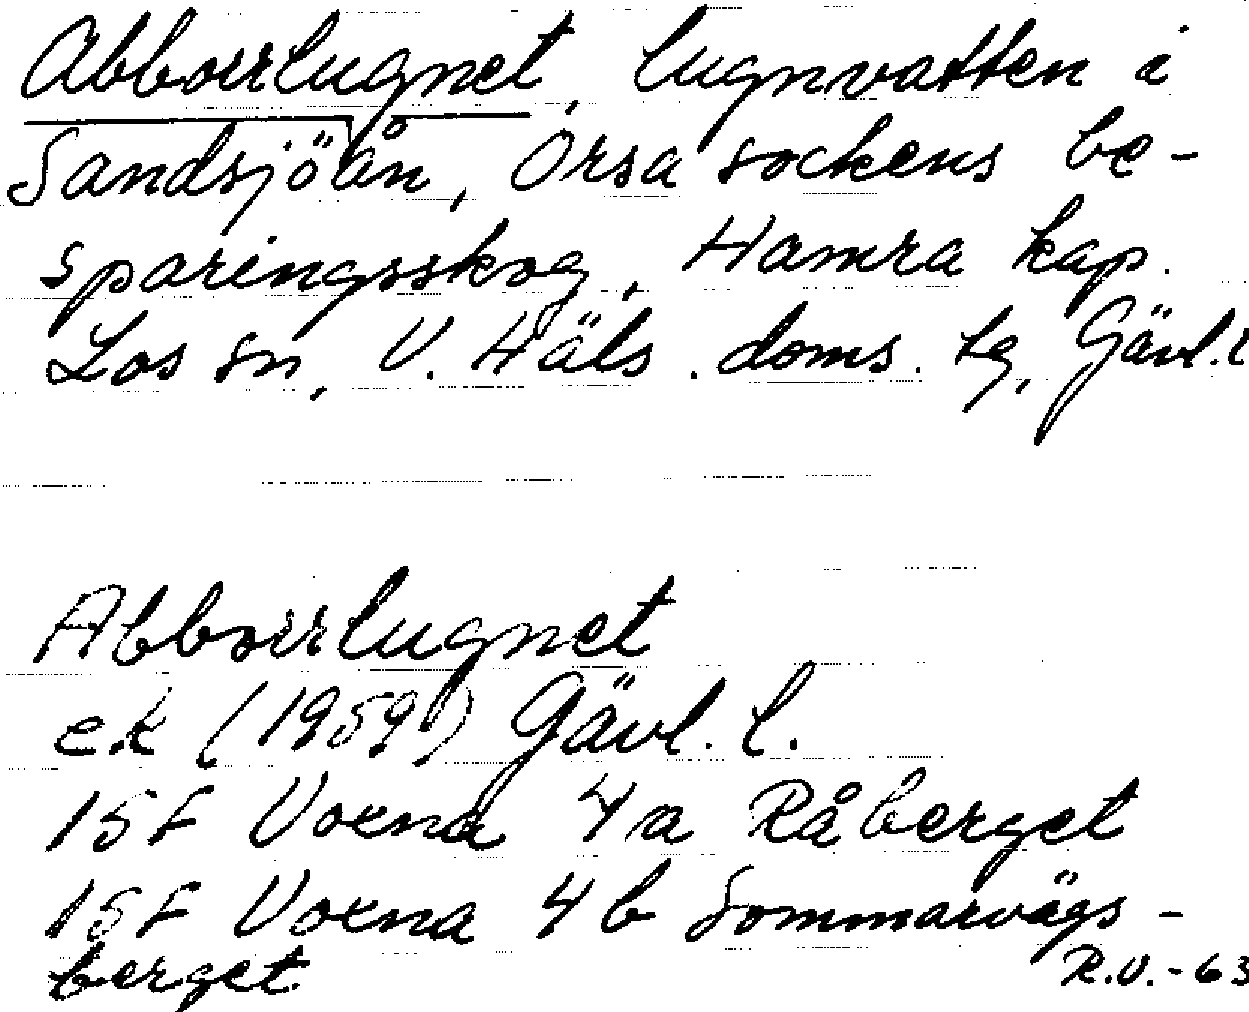 Abborrlugnet, lugnvatten i
Sandsjöån, Orsa sockens be-
sparingsskog, Hamra kap.
Los sn, V. Häls. doms. tg, Gävl. l
Abborrlugnet
ek (1959) Gävl. l.
15F Voxna 4a Råberget
15F Voxna 4b Sommarvägs-
berget
R.V.-63